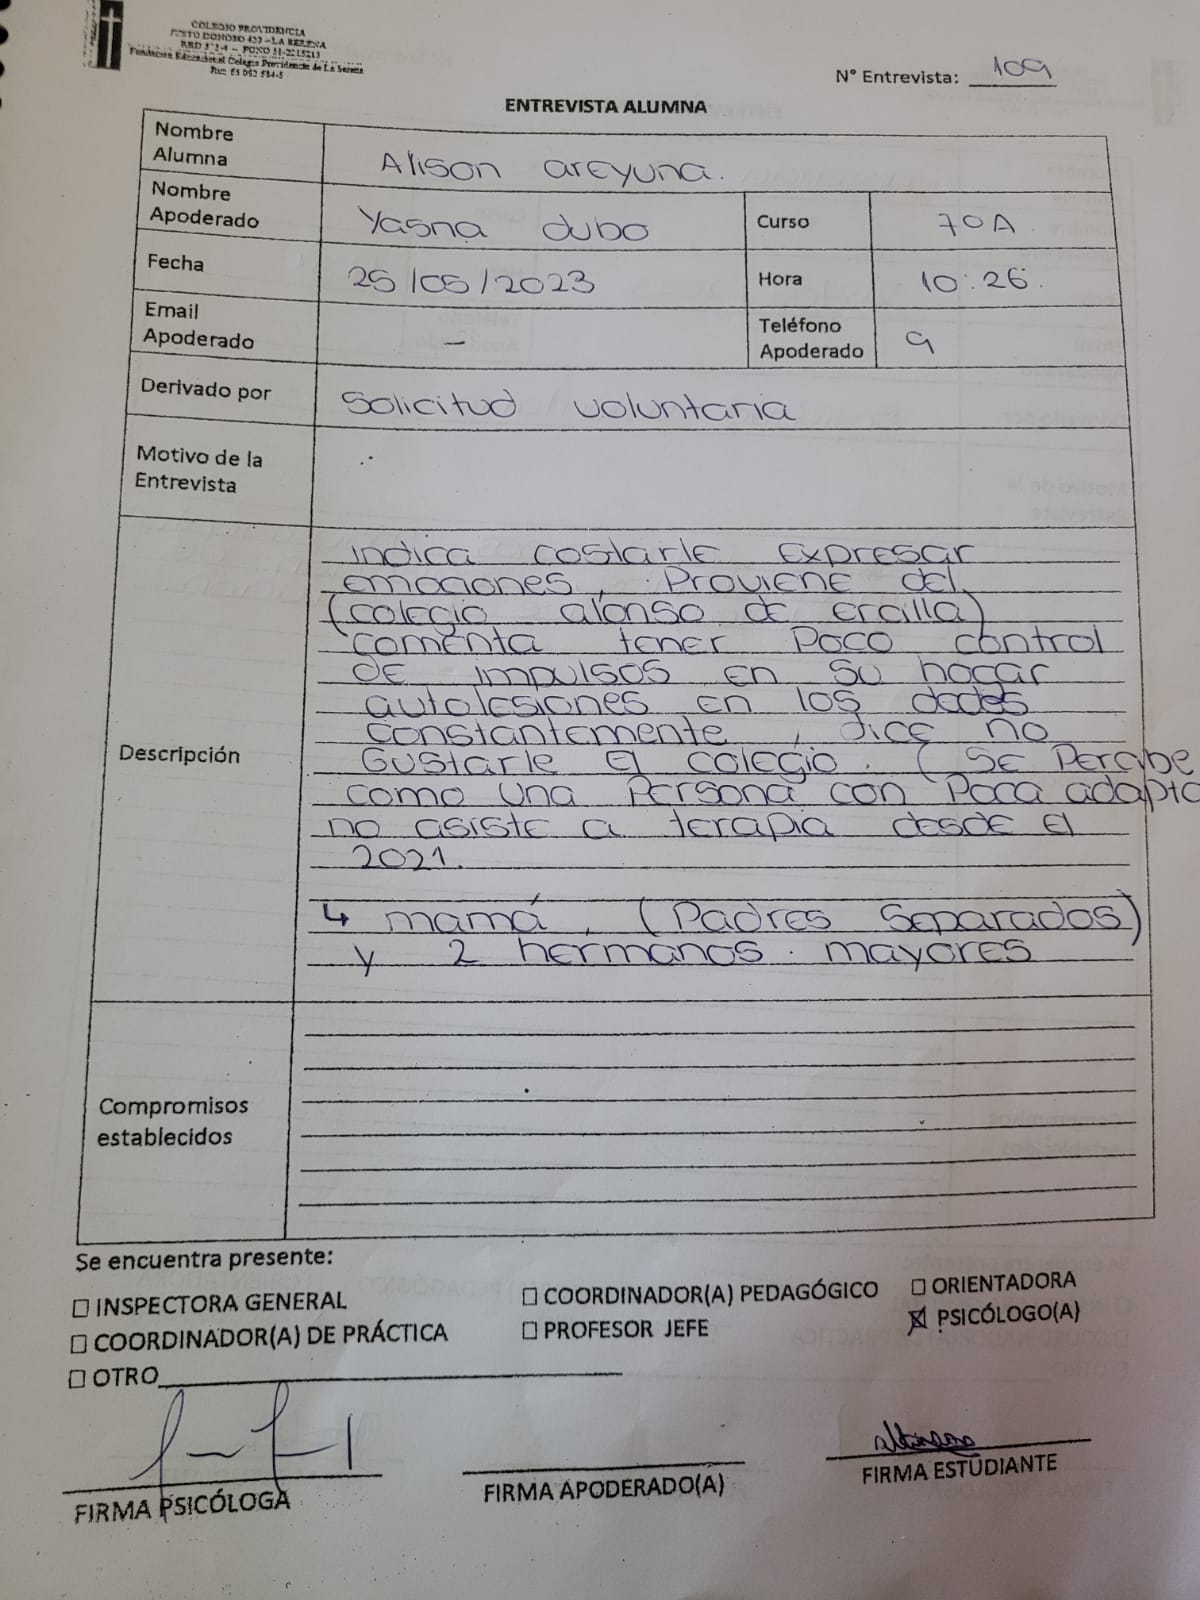 COLEGIO PROVIDENCIA
JUSTO DONOSO 420 - LA SERENA
Fundación Educacional Colegio Providencia de La Serena
N° Entrevista: 109
ENTREVISTA ALUMNA
Nombre Alumna Alison areyuna.
Nombre Apoderado Yasna dubo Curso 7OA
Fecha 25/05/2023 Hora 10:26.
Email Apoderado - Teléfono Apoderado 9
Derivado por Solicitud voluntaria
Motivo de la Entrevista
Descripción
indica costarle expresar
emociones, . Proviene del
(colegio alonso de ercilla)
comenta tener poco control
de impulsos en su hogar
autolesiones en los dedos
constantemente, dice no
Gustarle El colegio. (Se Percibe
como una Persona con Poca adapta
no asiste a terapia desde el
2021.
4 mamá, (Padres Separados)
y 2 hermanos. mayores
Compromisos establecidos
Se encuentra presente:
☐ INSPECTORA GENERAL ☐ COORDINADOR(A) PEDAGÓGICO ☐ ORIENTADORA
☐ COORDINADOR(A) DE PRÁCTICA ☐ PROFESOR JEFE ☒ PSICÓLOGO(A)
☐ OTRO
FIRMA PSICÓLOGA FIRMA APODERADO(A) FIRMA ESTUDIANTE